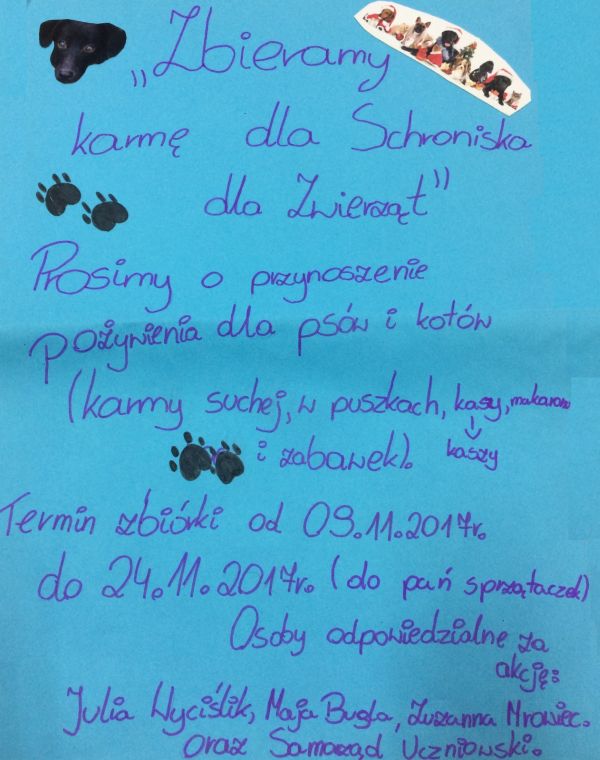 „Zbieramy
karmę dla Schroniska
dla Zwierząt”
Prosimy o przynoszenie
pożywienia dla psów i kotów
(karmy suchej, w puszkach, kasy, makaron
kaszy
i zabawek).
Termin zbiórki od 09.11.2017r.
do 24.11.2017r. (do pań sprzątaczek)
Osoby odpowiedzialne za
akcję:
Julia Wyciślik, Maja Bugla, Zuzanna Mrowiec.
oraz Samorząd Uczniowski.